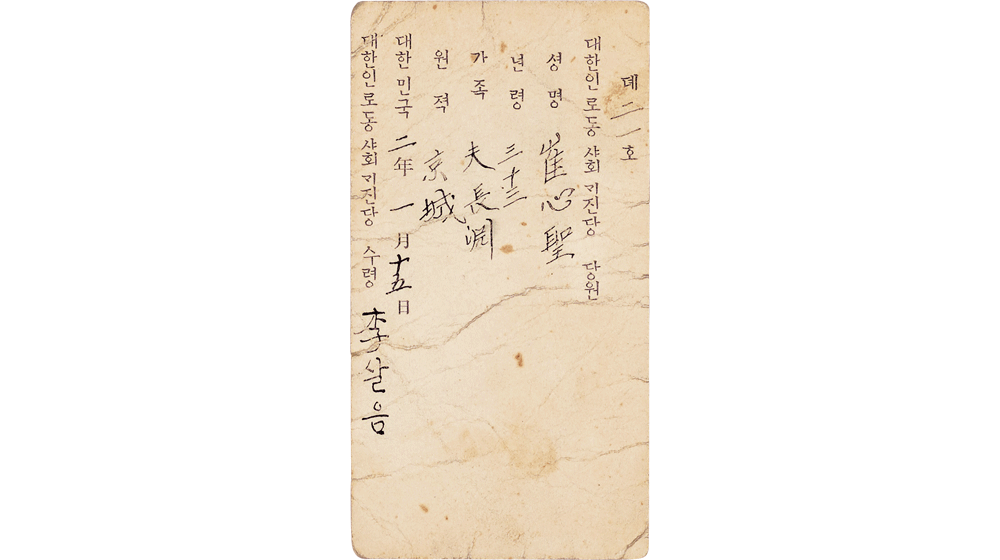 뎨二一호
대한인로동샤회ᄀᆡ진당 당원
셩명 崔心聖
년령 三十三
가족 夫長淵
원젹 京城
대한민국二年一月十五日
대한인로동샤회ᄀᆡ진당 수령 李살음